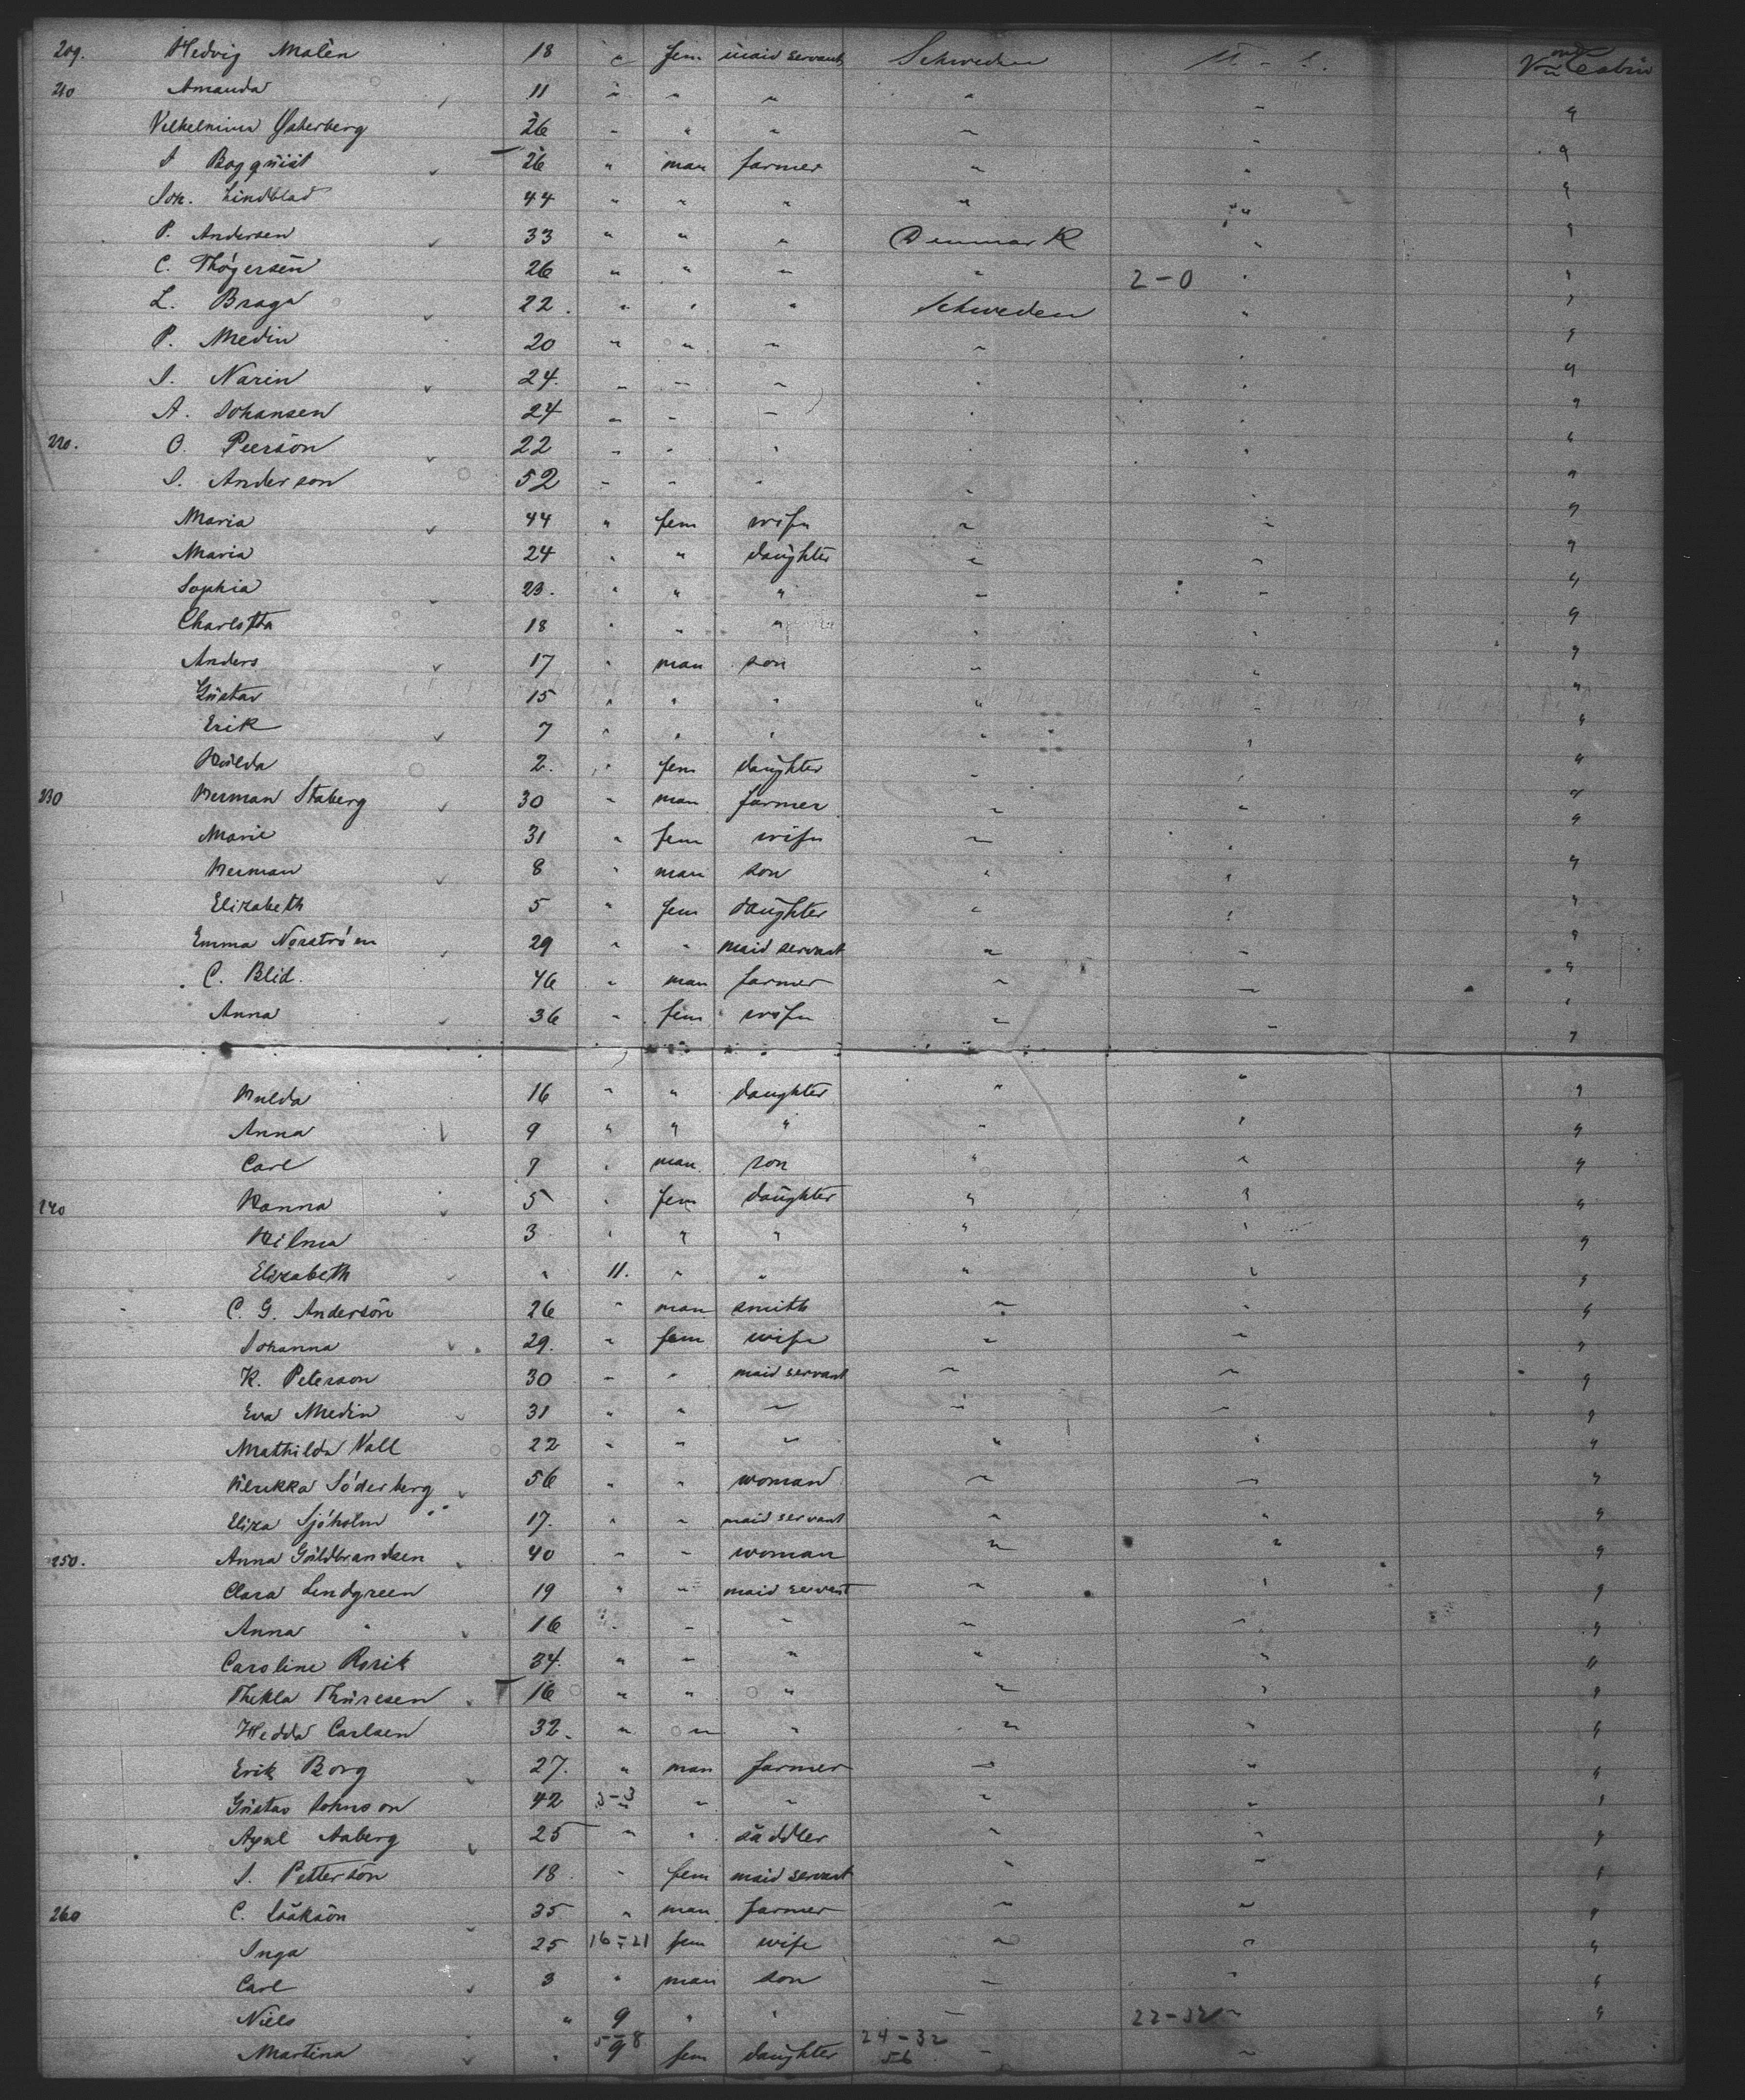 209. Hedvig Malén 18 " fem maid servant Schweden U - S. Cabin
210 Amanda 11 " " " " " "
Vilhelmina Østerberg 26 " " " " " "
Bogqúist 26 " man farmer " " "
Joh. Lindblad 44 " " " " " "
P. Andersen 33 " " " Denmark " "
C. Thógersen 26 " " " " 2-0 " "
L. Braga 22. " " " Schweden " "
P. Medin 20 " " " " " "
J. Narin 24. " " " " " "
A. Johansen 24 " " " " " "
220. O. Peerson 22 " " " " " "
J. Anderson 52 " " " " " "
Maria 44 " fem wife " " "
Maria 24 " " daúghter " " "
Sophia 23. " " " " " "
Charlotta 18 " " " " " "
Anders 17 " man son " " "
Gústav 15 " " " " " "
Erik 7 " " " " " "
Húlda 2. " fem daúghter " " "
230 Herman Staberg 30 " man farmer " " "
Marie 31 " fem wife " " "
Herman 8 " man son " " "
Elizabeth 5 " fem daúghter " " "
Emma Norström 29 " " maid servant " " "
C. Blid. 46 " man farmer " " "
Anna 36 " fem wife " " "
Hulda 16 " " daughter " " "
Anna 9 " " " " " "
Carl 7 " man son " " "
240 Hanna 5 " fem daúghter " " "
Hilma 3 " " " " " "
Elizabeth " 11. " " " " "
C. G. Anderson 26 " man smith " " "
Johanna 29. " fem wife " " "
K. Peterson 30 " " maid servant " " "
Eva Medin 31 " " " " " "
Mathilda Vall 22 " " " " " "
Ulrikka Söderberg 56 " " woman " " "
Eliza Sjöholm 17. " " maid servant " " "
250. Anna Gúldbrandsen 40 " " woman " " "
Clara Lindgreen 19 " " maid servant " " "
Anna " 16 " " " " " "
Caroline Rorik 34. " " " " " "
Thekla Thúresen 16 " " " " " "
Hedda Carlsen 32. " " " " " "
Erik Borg 27. " man farmer " " "
Gústav Johnson 42 3-3 " " " " "
Axel Aaberg 25 " " saddler " " "
J. Petterson 18 " fem maid servant " " "
260 C. 35 " man farmer " " "
Inga 25 16-21 fem wife " " "
Carl 3 " man son " " "
Niels " 9 " " " 22-32 " "
5-8 24-32
Martina " 9 fem daughter 56 " "